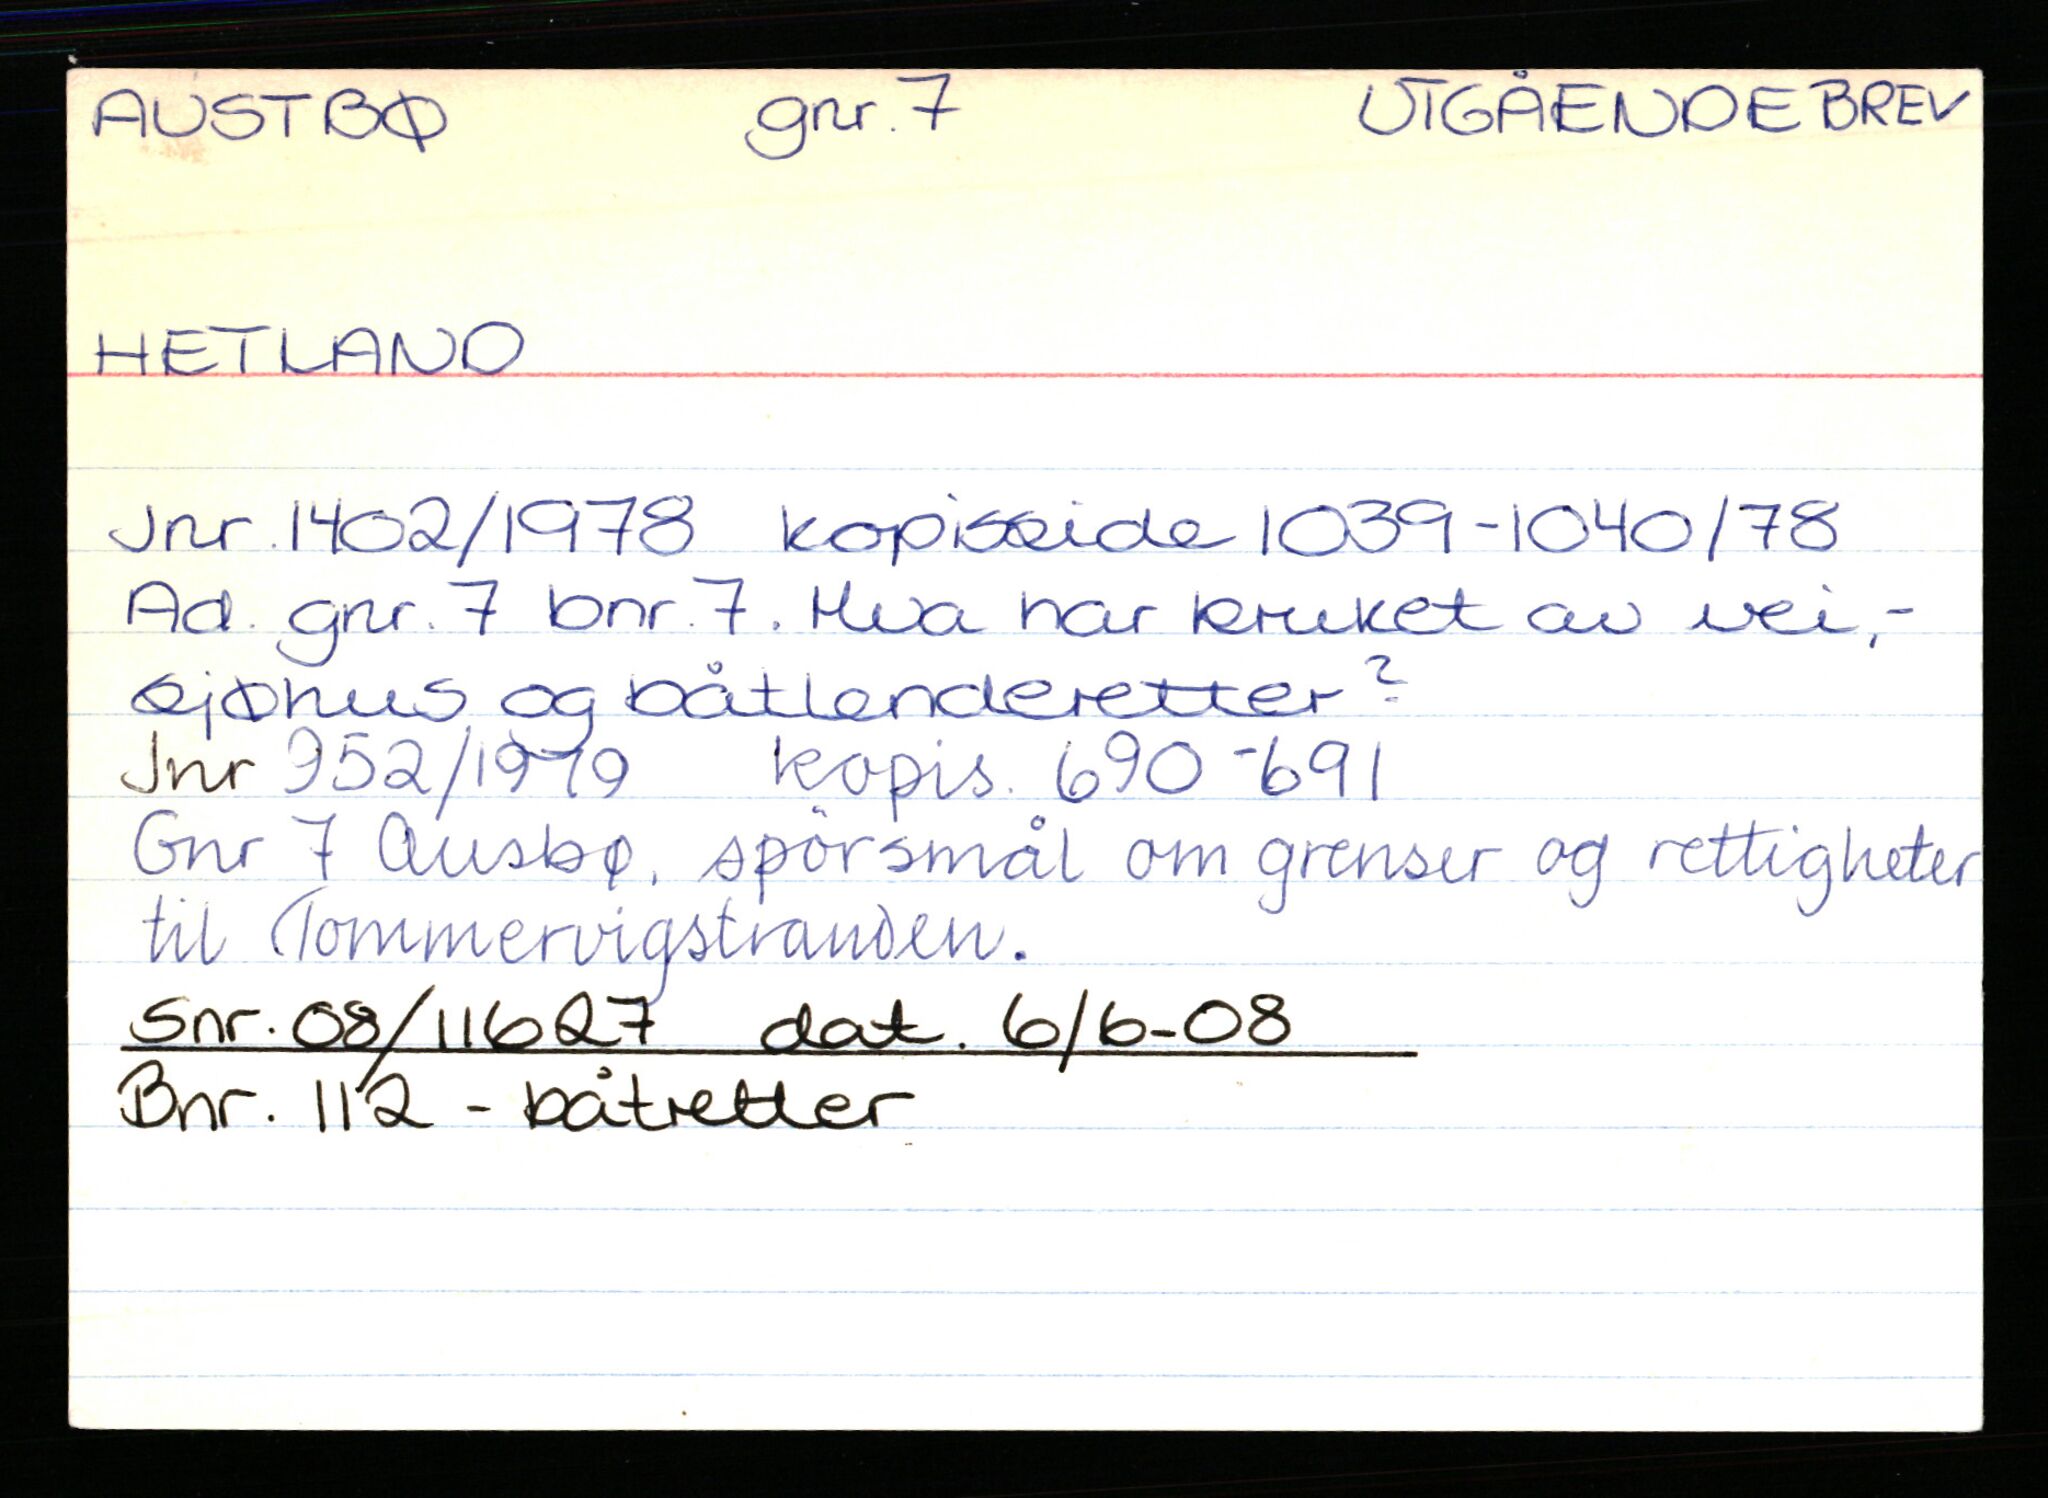 AUSTBØ gnr. 7 UTGÅENDE BREV
HETLAND
Jnr. 1402/1978 kopiseide 1039-1040/78
Ad. gnr. 7 bnr. 7. Hva har bruket av vei,-
sjøhus og båtlenderetter?
Jnr 952/1979 kopis. 690-691
Gnr 7 Ausbø, spörsmål om grenser og rettigheter
til Tommervigstranden.
Snr. 08/11627 dat. 6/6-08
Bnr. 112 - båtretter